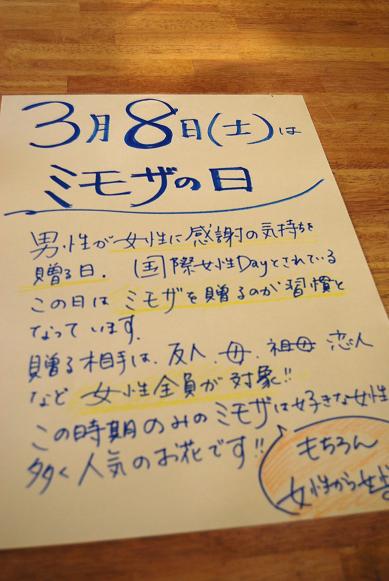 3月8日(土)は
ミモザの日
男性が女性に感謝の気持を
贈る日。国際女性Dayとされている
この日はミモザを贈るのが習慣と
なっています。
贈る相手は、友人、母、祖母、恋人
など女性全員が対象!!
この時期のみのミモザは好きな女性
多く人気のお花です!!
もちろん
女性から女性